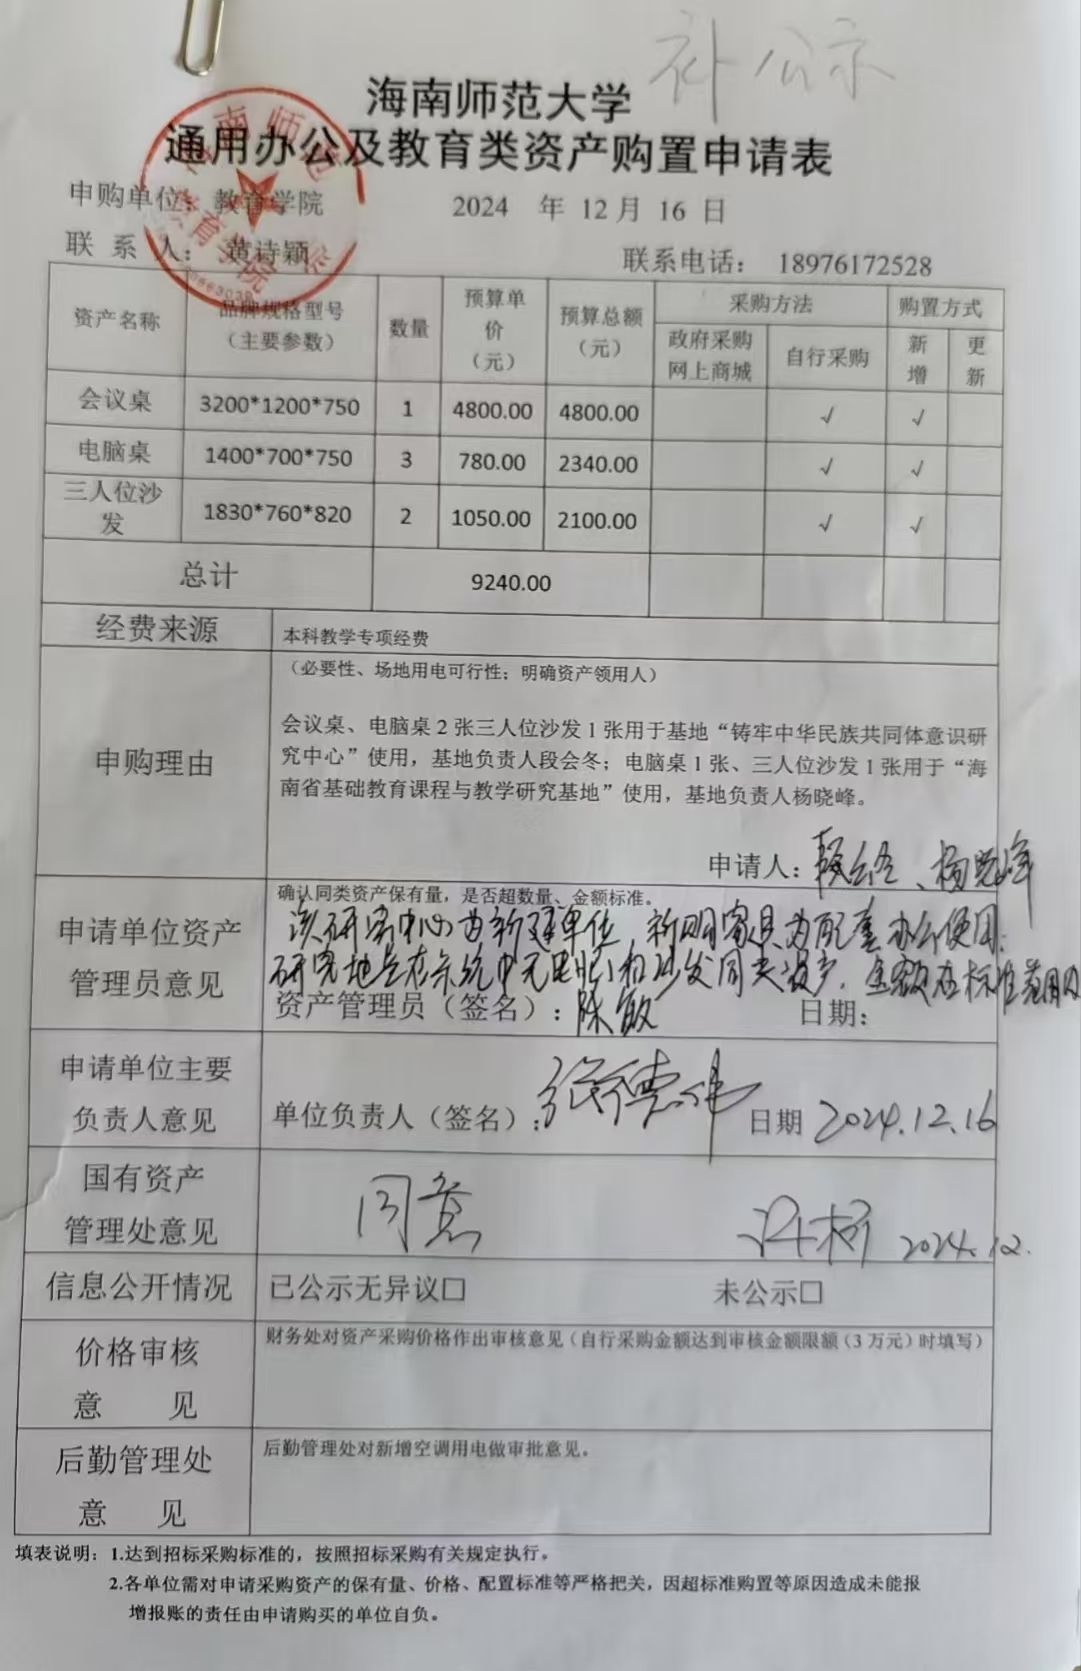 补公示
海南师范大学
通用办公及教育类资产购置申请表
申购单位：教育学院 2024 年 12 月 16 日
联 系 人： 黄诗颖 联系电话： 18976172528
资产名称 品牌规格型号（主要参数） 数量 预算单价（元） 预算总额（元） 采购方法 购置方式
政府采购网上商城 自行采购 新增 更新
会议桌 3200*1200*750 1 4800.00 4800.00 √ √
电脑桌 1400*700*750 3 780.00 2340.00 √ √
三人位沙发 1830*760*820 2 1050.00 2100.00 √ √
总计 9240.00
经费来源 本科教学专项经费
（必要性、场地用电可行性；明确资产领用人）
申购理由
会议桌、电脑桌 2 张三人位沙发 1 张用于基地“铸牢中华民族共同体意识研
究中心”使用，基地负责人段会冬；电脑桌 1 张、三人位沙发 1 张用于“海
南省基础教育课程与教学研究基地”使用，基地负责人杨晓峰。
申请人： 、杨晓峰
申请单位资产管理员意见
确认同类资产保有量，是否超数量、金额标准。
该研究中心为新建单位，新购家具为配套办公使用；
研究地点在系统中无电脑 和沙发同类资产，金额在标准范围内
资产管理员（签名）：陈敏 日期：
申请单位主要负责人意见
单位负责人（签名）：张德伟 日期 2024.12.16
国有资产管理处意见
同意 许柯 2024.12.
信息公开情况 已公示无异议□ 未公示□
价格审核意 见
财务处对资产采购价格作出审核意见（自行采购金额达到审核金额限额（3 万元）时填写）
后勤管理处意 见
后勤管理处对新增空调用电做审批意见。
填表说明：1.达到招标采购标准的，按照招标采购有关规定执行。
2.各单位需对申请采购资产的保有量、价格、配置标准等严格把关，因超标准购置等原因造成未能报
增报账的责任由申请购买的单位自负。